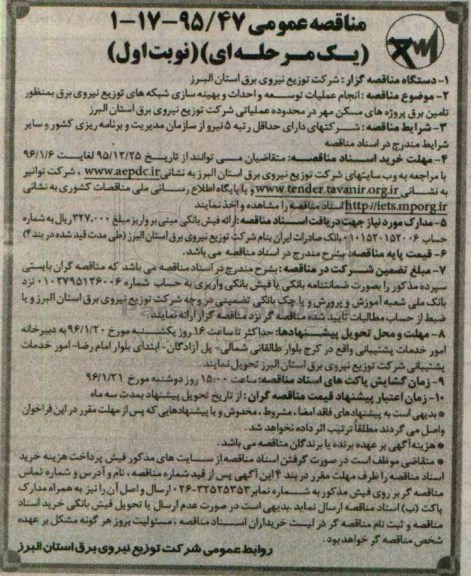 مناقصه عمومی ۹۵/۴۷-۱۷-۱
(یک مرحله ای)(نوبت اول)
۱- دستگاه مناقصه گزار : شرکت توزیع نیروی برق استان البرز
۲- موضوع مناقصه : انجام عملیات توسعه و احداث و بهینه سازی شبکه های توزیع نیروی برق بمنظور
تامین برق پروژه های مسکن مهر در محدوده عملیاتی شرکت توزیع نیروی برق استان البرز
۳- شرایط مناقصه : شرکتهای دارای حداقل رتبه ۵ نیرو از سازمان مدیریت و برنامه ریزی کشور و سایر
شرایط مندرج در اسناد مناقصه
۴- مهلت خرید اسناد مناقصه : متقاضیان می توانند از تاریخ ۹۵/۱۲/۲۵ لغایت ۹۶/۱/۶
با مراجعه به وب سایتهای شرکت توزیع نیروی برق استان البرز به نشانی www.aepdc.ir ، شرکت توانیر
به نشانی www.tender.tavanir.org.ir و یا پایگاه اطلاع رسانی ملی مناقصات کشوری به نشانی
http://iets.mporg.ir اسناد مناقصه را مشاهده و اخذ نمایند
۵- مدارک مورد نیاز جهت دریافت اسناد مناقصه : ارائه فیش بانکی مبنی بر واریز مبلغ ۳۲۷,۰۰۰ ریال به شماره
حساب ۰۱۰۱۵۲۰۱۵۲۰۰۶ بانک صادرات ایران بنام شرکت توزیع نیروی برق استان البرز (طی مدت قید شده در بند ۴)
۶- قیمت پایه مناقصه : بشرح مندرج در اسناد مناقصه می باشد.
۷- مبلغ تضمین شرکت در مناقصه : بشرح مندرج در اسناد مناقصه می باشد که مناقصه گران بایستی
سپرده مذکور را بصورت ضمانتنامه بانکی یا فیش بانکی واریزی به حساب شماره ۰۱۰۲۷۹۵۱۳۶۰۰۶ نزد
بانک ملی شعبه آموزش و پرورش و یا چک بانکی تضمینی در وجه شرکت توزیع نیروی برق استان البرز و یا
ضبط از حساب مطالبات تایید شده مناقصه گر نزد مناقصه گزار ارائه نمایند.
۸- مهلت و محل تحویل پیشنهادها: حداکثر تا ساعت ۱۶ روز یکشنبه مورخ ۹۶/۱/۲۰ به دبیرخانه
امور خدمات پشتیبانی واقع در کرج بلوار طالقانی شمالی- پل آزادگان- ابتدای بلوار امام رضا- امور خدمات
پشتیبانی شرکت توزیع نیروی برق استان البرز تحویل نمایند.
۹- زمان گشایش پاکت های اسناد مناقصه : ساعت ۱۵:۰۰ روز دوشنبه مورخ ۹۶/۱/۲۱
۱۰- زمان اعتبار پیشنهاد قیمت مناقصه گران : از تاریخ تحویل پیشنهاد بمدت سه ماه
* بدیهی است به پیشنهادهای فاقد امضاء ، مشروط ، مخدوش و یا پیشنهادهایی که پس از مهلت مقرر در این فراخوان
واصل می گردند مطلقاً ترتیب اثر داده نخواهد شد.
* هزینه آگهی بر عهده برنده یا برندگان مناقصه می باشد.
* متقاضی موظف است در صورت گرفتن اسناد مناقصه از سایت های مذکور فیش پرداخت هزینه خرید
اسناد مناقصه را ظرف مهلت مقرر در بند ۴ این آگهی پس از قید شماره مناقصه ، نام و آدرس و شماره تماس
مناقصه گر بر روی فیش مذکور به شماره نمابر ۳۲۵۲۵۳۵۳-۰۲۶ ارسال و اصل آن را نیز به همراه مدارک
پاکت (ب) اسناد مناقصه ارسال نماید. بدیهی است در صورت عدم ارسال یا تحویل فیش بانکی خرید اسناد
مناقصه و ثبت نام مناقصه گر در لیست خریداران اسناد مناقصه ، مسئولیت بروز هر گونه مشکل بر عهده
شخص مناقصه گر خواهد بود.
روابط عمومی شرکت توزیع نیروی برق استان البرز